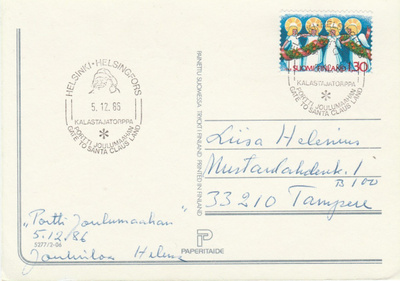 HELSINKI - HELSINGFORS
5.12.86
KALASTAJATORPPA
PORTTI JOULUMAAHAN
GATE TO SANTA CLAUS LAND
SUOMI-FINLAND 1,30
KALASTAJATORPPA
PORTTI JOULUMAAHAN
GATE TO SANTA CLAUS LAND
PAINETTU SUOMESSA TRYCKT I FINLAND PRINTED IN FINLAND
Liisa Helenius
Mustanlahdenk. 1
B 100
33210 Tampere
"Portti Joulumaahan"
5.12.86
Jouluiloa Helena
5277/2-06
PAPERITAIDE